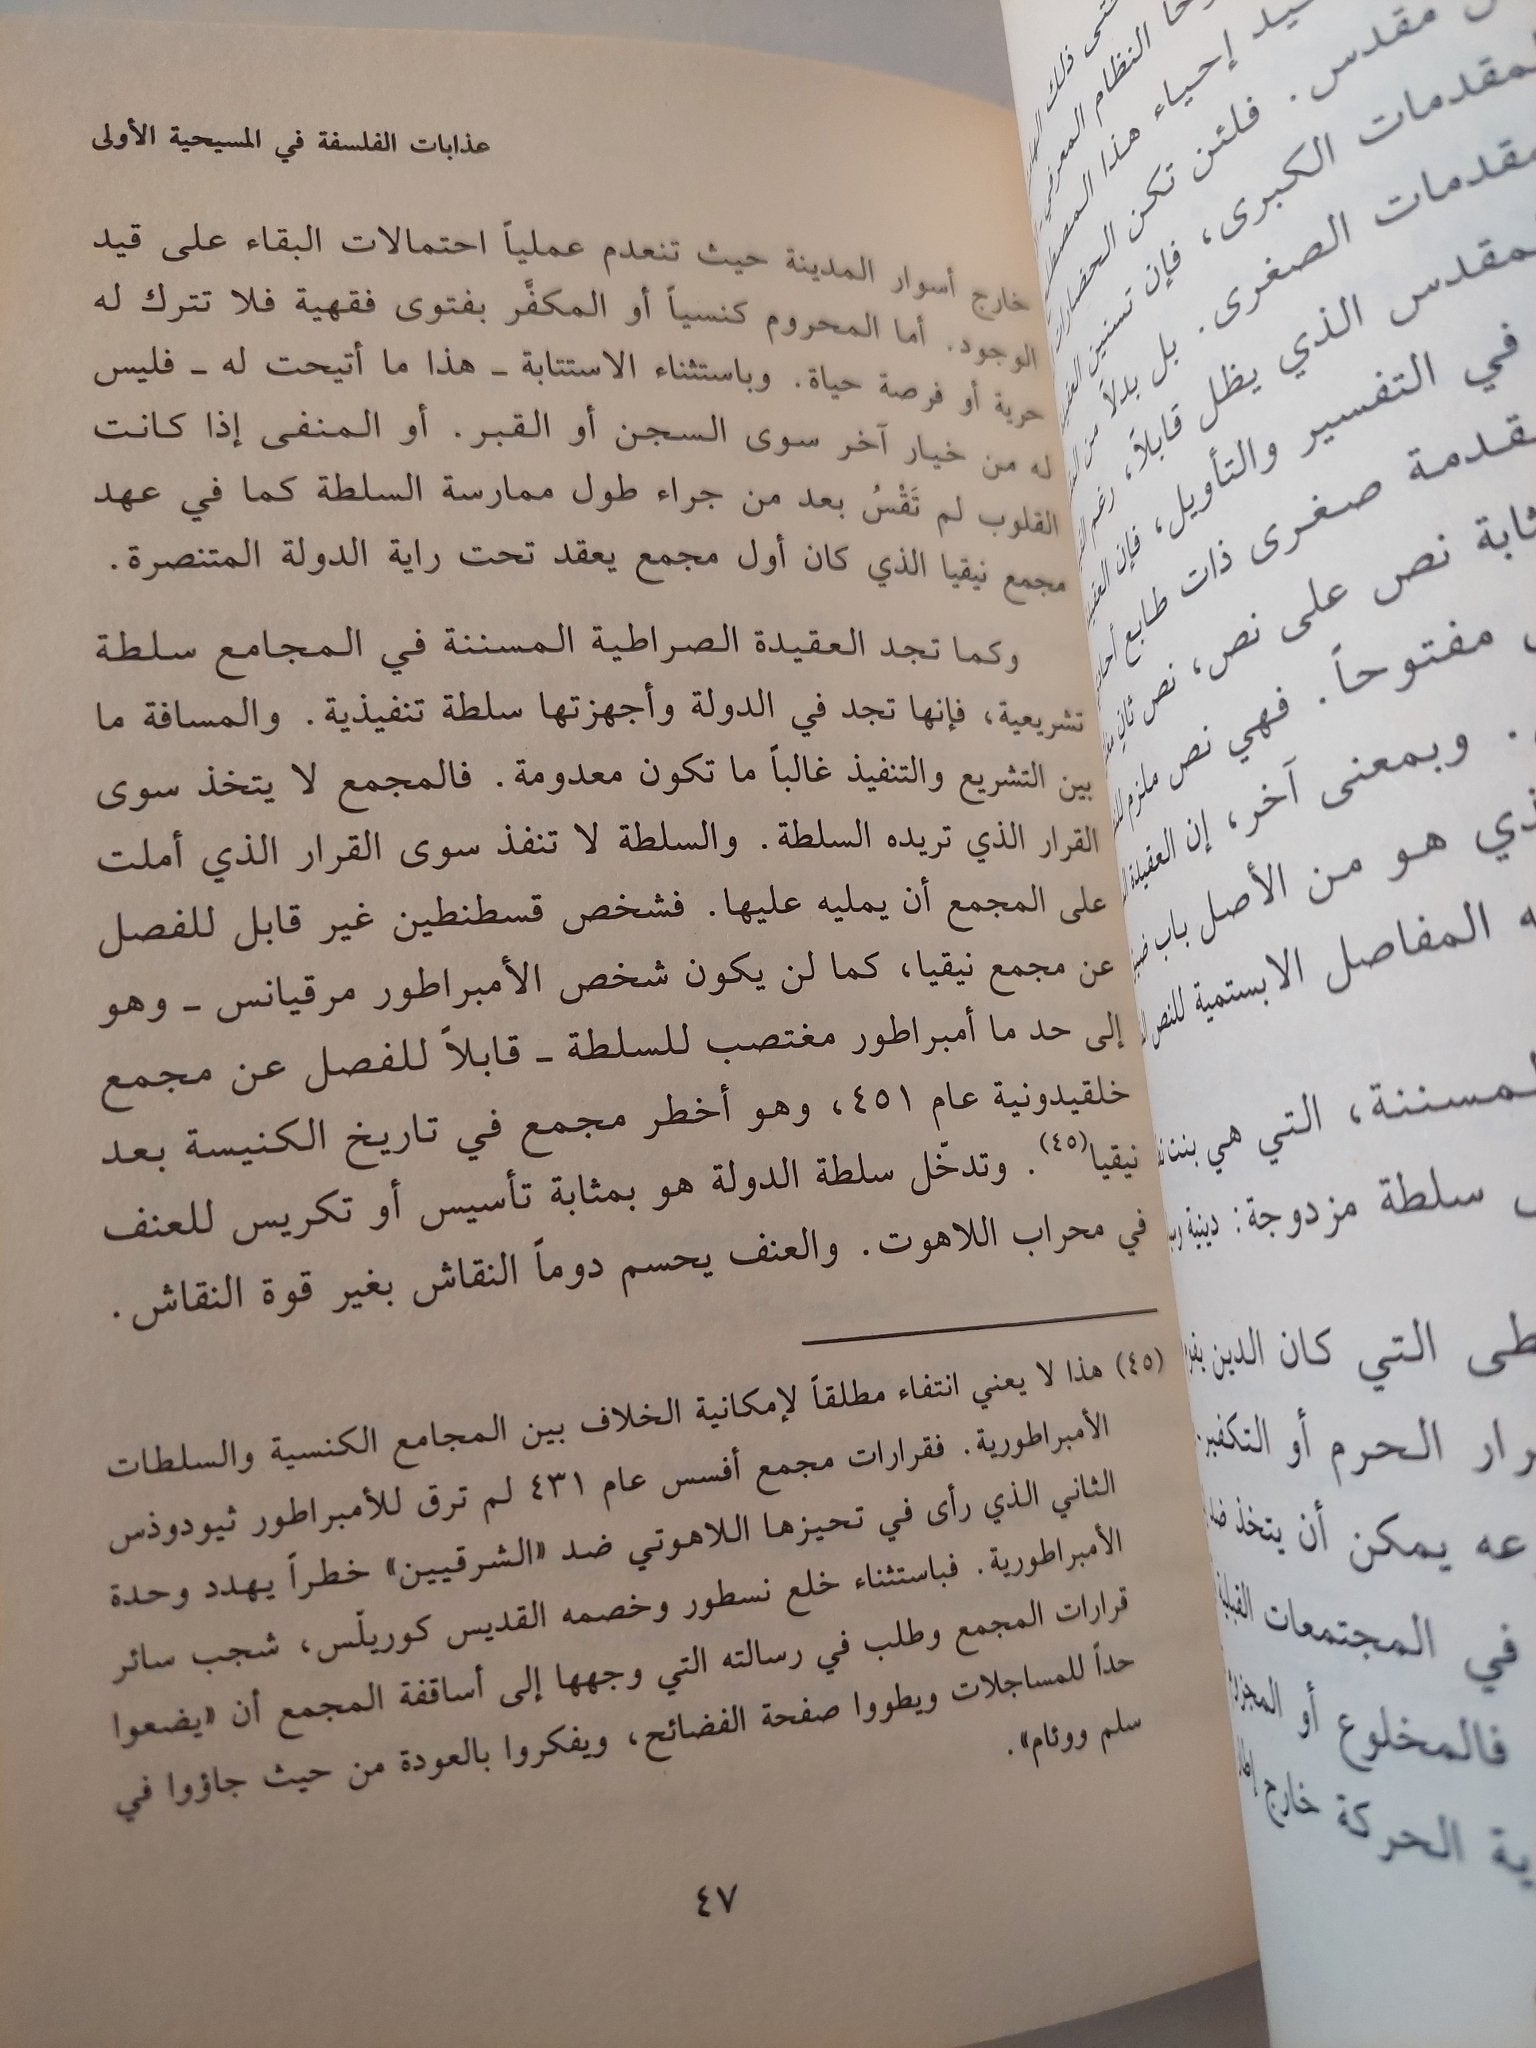 عذابات الفلسفة في المسيحية الأولى
خارج أسوار المدينة حيث تنعدم عملياً احتمالات البقاء على قيد
الوجود. أما المحروم كنسياً أو المكفَّر بفتوى فقهية فلا تترك له
حرية أو فرصة حياة. وباستثناء الاستتابة ـ هذا ما أتيحت له ـ فليس
له من خيار آخر سوى السجن أو القبر. أو المنفى إذا كانت
القلوب لم تَقْسُ بعد من جراء طول ممارسة السلطة كما في عهد
مجمع نيقيا الذي كان أول مجمع يعقد تحت راية الدولة المتنصرة.
وكما تجد العقيدة الصراطية المسننة في المجامع سلطة
تشريعية، فإنها تجد في الدولة وأجهزتها سلطة تنفيذية. والمسافة ما
بين التشريع والتنفيذ غالباً ما تكون معدومة. فالمجمع لا يتخذ سوى
القرار الذي تريده السلطة. والسلطة لا تنفذ سوى القرار الذي أملت
على المجمع أن يمليه عليها. فشخص قسطنطين غير قابل للفصل
عن مجمع نيقيا، كما لن يكون شخص الأمبراطور مرقيانس ـ وهو
إلى حد ما أمبراطور مغتصب للسلطة ـ قابلاً للفصل عن مجمع
خلقيدونية عام ٤٥١، وهو أخطر مجمع في تاريخ الكنيسة بعد
نيقيا(٤٥). وتدخّل سلطة الدولة هو بمثابة تأسيس أو تكريس للعنف
في محراب اللاهوت. والعنف يحسم دوماً النقاش بغير قوة النقاش.
(٤٥) هذا لا يعني انتفاء مطلقاً لإمكانية الخلاف بين المجامع الكنسية والسلطات
الأمبراطورية. فقرارات مجمع أفسس عام ٤٣١ لم ترق للأمبراطور ثيودوذس
الثاني الذي رأى في تحيزها اللاهوتي ضد «الشرقيين» خطراً يهدد وحدة
الأمبراطورية. فباستثناء خلع نسطور وخصمه القديس كوريلّس، شجب سائر
قرارات المجمع وطلب في رسالته التي وجهها إلى أساقفة المجمع أن «يضعوا
حداً للمساجلات ويطووا صفحة الفضائح، ويفكروا بالعودة من حيث جاؤوا في
سلم ووئام».
٤٧
ذلك
النظام المعرفي
إحياء هذا
مقدس. فلئن تكن الحضارات
المقدمات الكبرى، فإن تسنين
الصغرى. بل بدلاً من
المقدس الذي يظل قابلاً، رغم
في التفسير والتأويل، فإن
صغرى ذات طابع
نص على نص، نص ثانٍ
مفتوحاً. فهي نص ملزم
وبمعنى آخر، إن العقيدة
هو من الأصل باب
المفاصل الابستمية للنص
المسننة، التي هي بنت
سلطة مزدوجة: دينية
التي كان الدين
الحرم أو التكفير
يمكن أن يتخذ
في المجتمعات
فالمخلوع أو
الحركة خارج